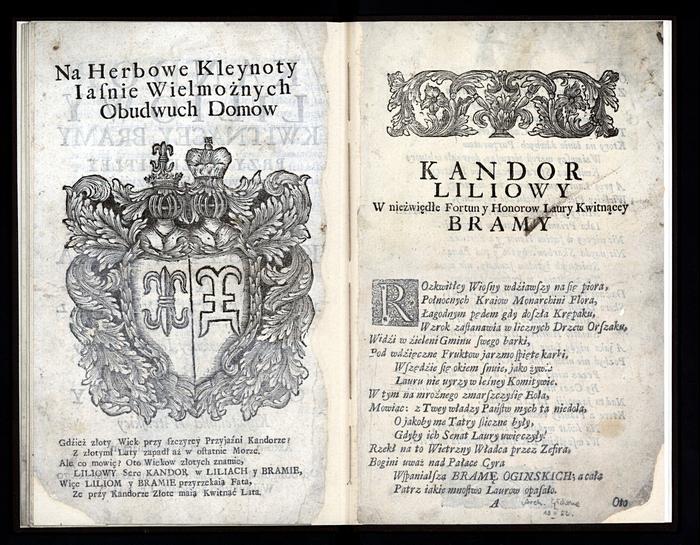 Na Herbowe Kleynoty
Iaſnie Wielmożnych
Obudwuch Domow
Gdzież złoty Wiek przy szczyrey Przyjaźni Kandorze?
Z złotymi Laty zapadł aż w ostatnie Morze.
Ale co mowię? Oto Wiekow złotych znamie,
LILIOWY Serc KANDOR w LILIACH y BRAMIE,
Więc LILIOM y BRAMIE przyrzekaią Fata,
Ze przy Kandorze Złote maią Kwitnąć Lata.
KANDOR
LILIOWY
W nieźwiędłe Fortun y Honorow Laury Kwitnącey
BRAMY
ROzkwitłey Wiosny wdźiawszy na się piora,
Połnocnych Kraiow Monarchini Flora,
Łagodnym pędem gdy doszła Krępaku,
Wzrok zastanawia w licznych Drzew Orszaku,
Widźi w źieleni Gminu swego barki,
Pod wdźięczne Fruktow jarzmo spięte karki,
Wszędźie się okiem snuie, jako żywo
Lauru nie uyrzy w leśney Komitywie.
W tym na mroźnego zmarszczyśię Eola,
Mowiąc: z Twey władzy Państw mych ta niedola,
O jakoby me Tatry śliczne były,
Gdyby ich Senat Laury uwięczyły!
Rzekł na to Wietrzny Władca przez Zefira,
Bogini uważ nad Pałace Cyra
Wspanialszą BRAMĘ OGINSKICH; a całą
Patrz iakie mnostwo Laurow opasało.
A
Oto